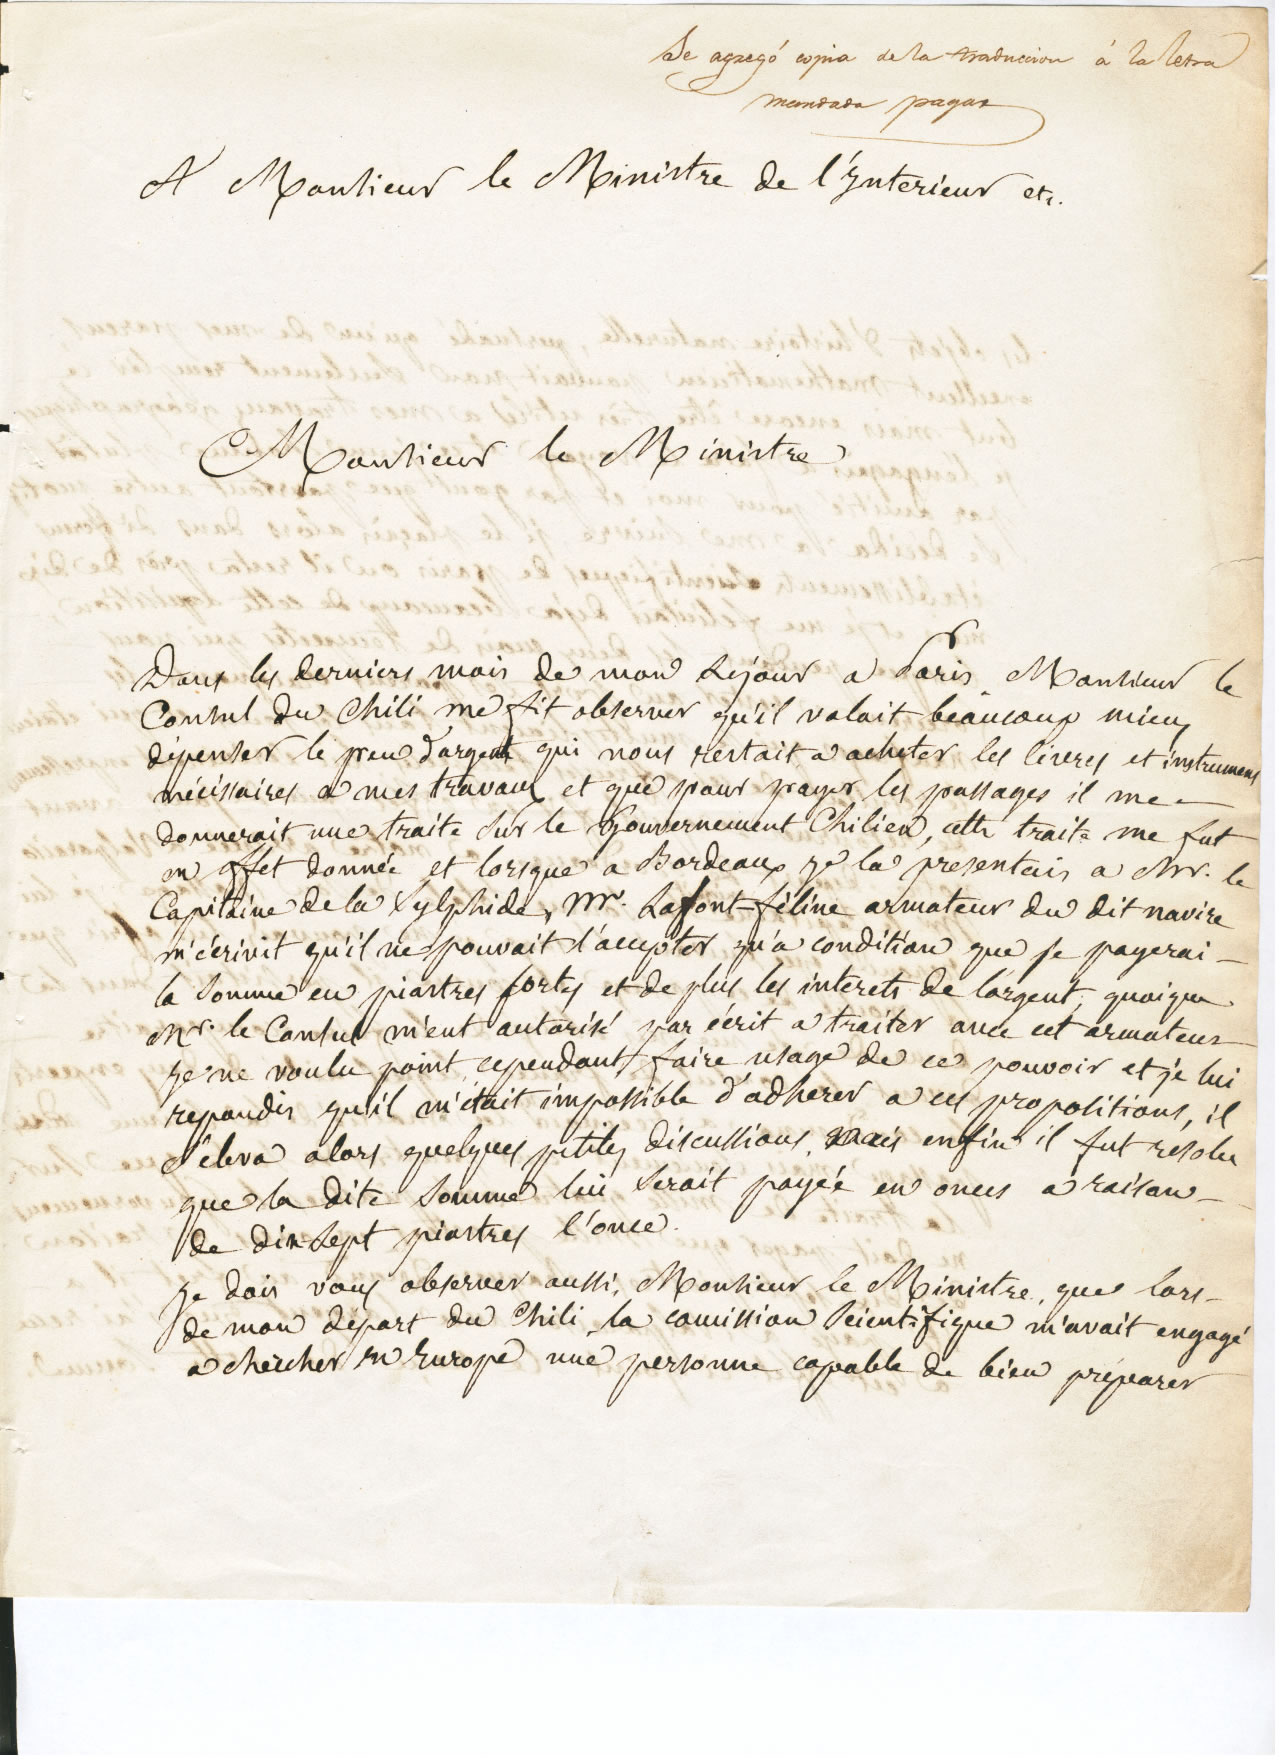 Se agregó copia de la traduccion á la letra
mandada pagar
A Monsieur le Ministre de l'Interieur etc.
Monsieur le Ministre
Dans les derniers mois de mon sejour a Paris, Monsieur le
Consul du Chili me fit observer qu'il valait beaucoup mieux
dépenser le peu d'argent qui nous restait a acheter les livres et instrumens
nécéssaires a mes travaux et que pour payer les passages il me
donnerait une traite sur le Gouvernement Chilien, cette traite me fut
en effet donnée et lorsque a Bordeaux je la presentais a Mr. le
Capitaine de la Sylphide, Mr. Lafont-féline armateur du dit navire
m'écrivit qu'il ne pouvait l'accepter qu'a condition que je payerai
la somme en piastres fortes et de plus les interets de l'argent, quoique
Mr. le Consul m'eut autorisé par écrit a traiter avec cet armateur
je ne voulu point cependant faire usage de ce pouvoir et je lui
repondis qu'il m'était impossible d'adherer a ces propositions, il
s'éleva alors quelques petites discussions, mais enfin il fut resolu
que la dite somme lui serait payée en onces a raison
de dix sept piastres l'once.
Je dois vous observer aussi, Monsieur le Ministre, que lors
de mon départ du Chili, la comission scientifique m'avait engagé
a chercher en Europe une personne capable de bien préparer